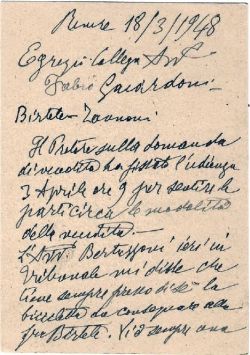 Revere 18/3/1948
Egregio Collega Avv.
Fabio Guardoni
Birtele - Zovnoni
Il Pretore sulla domanda
di vendita ha fissato l'udienza
3 Aprile ore 9 per sentire le
parti circa le modalità
della vendita -
L'Avv. Bertazzoni ieri in
Tribunale mi disse che
tiene sempre presso di sé la
bicicletta da consegnare alla
Birtele. Vi è sempre una